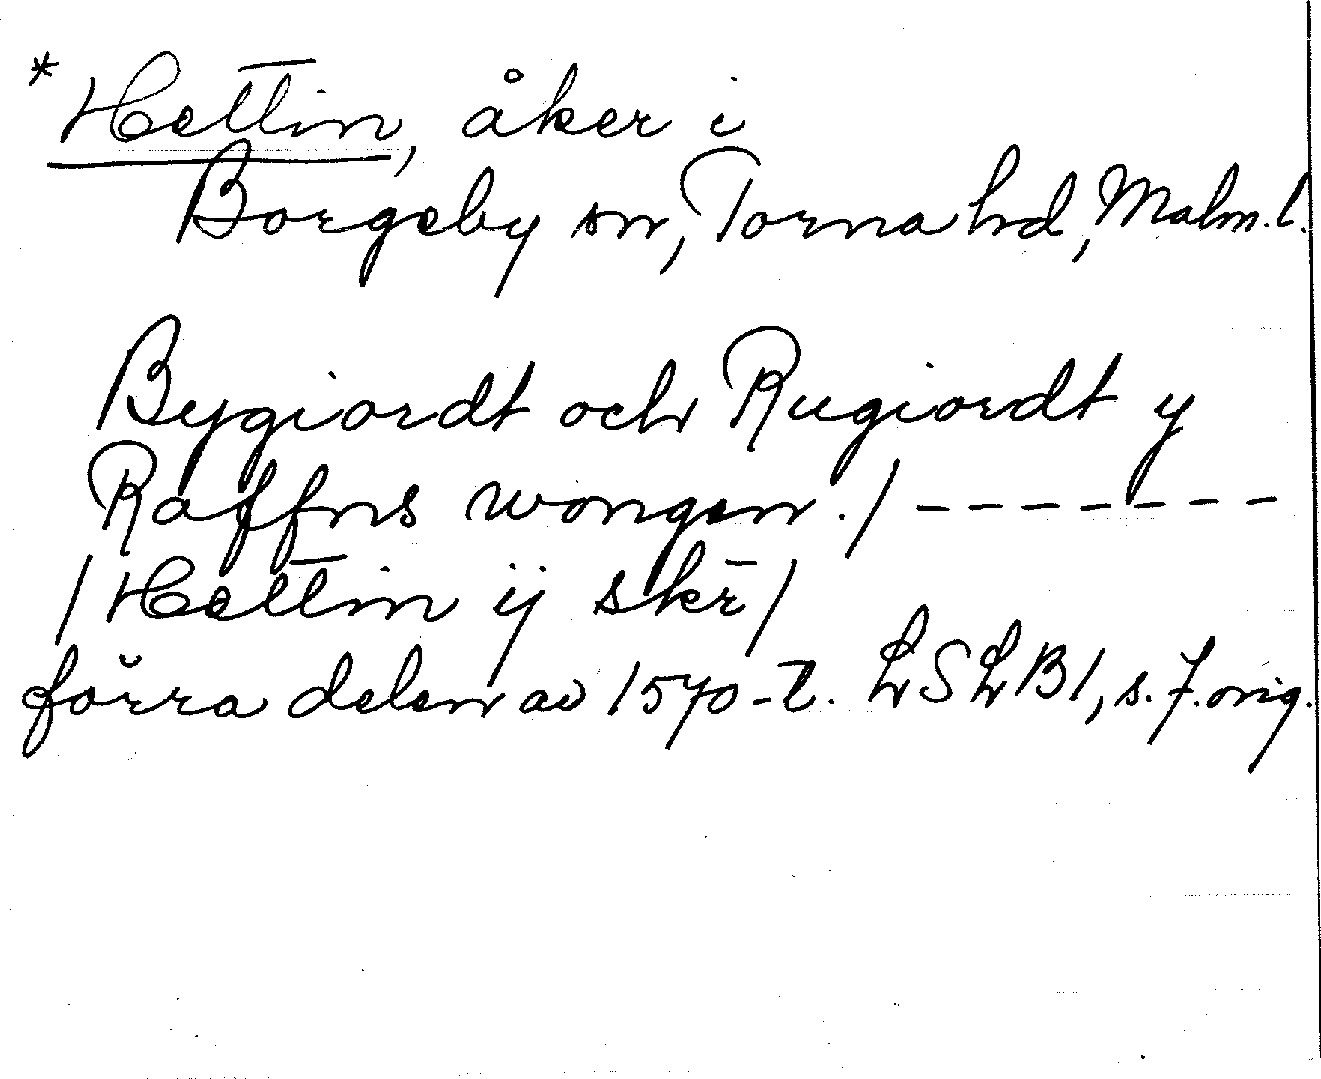 * Hettin, åker i
Borgeby sn, Torna hd, Malm. l.
Bygiordt och Rugiordt y
Raffns wongen. / - - - - - - -
/ Hettin ij skr̄ /
förra delen av 1570-t. LSLB1, s. 7. orig.